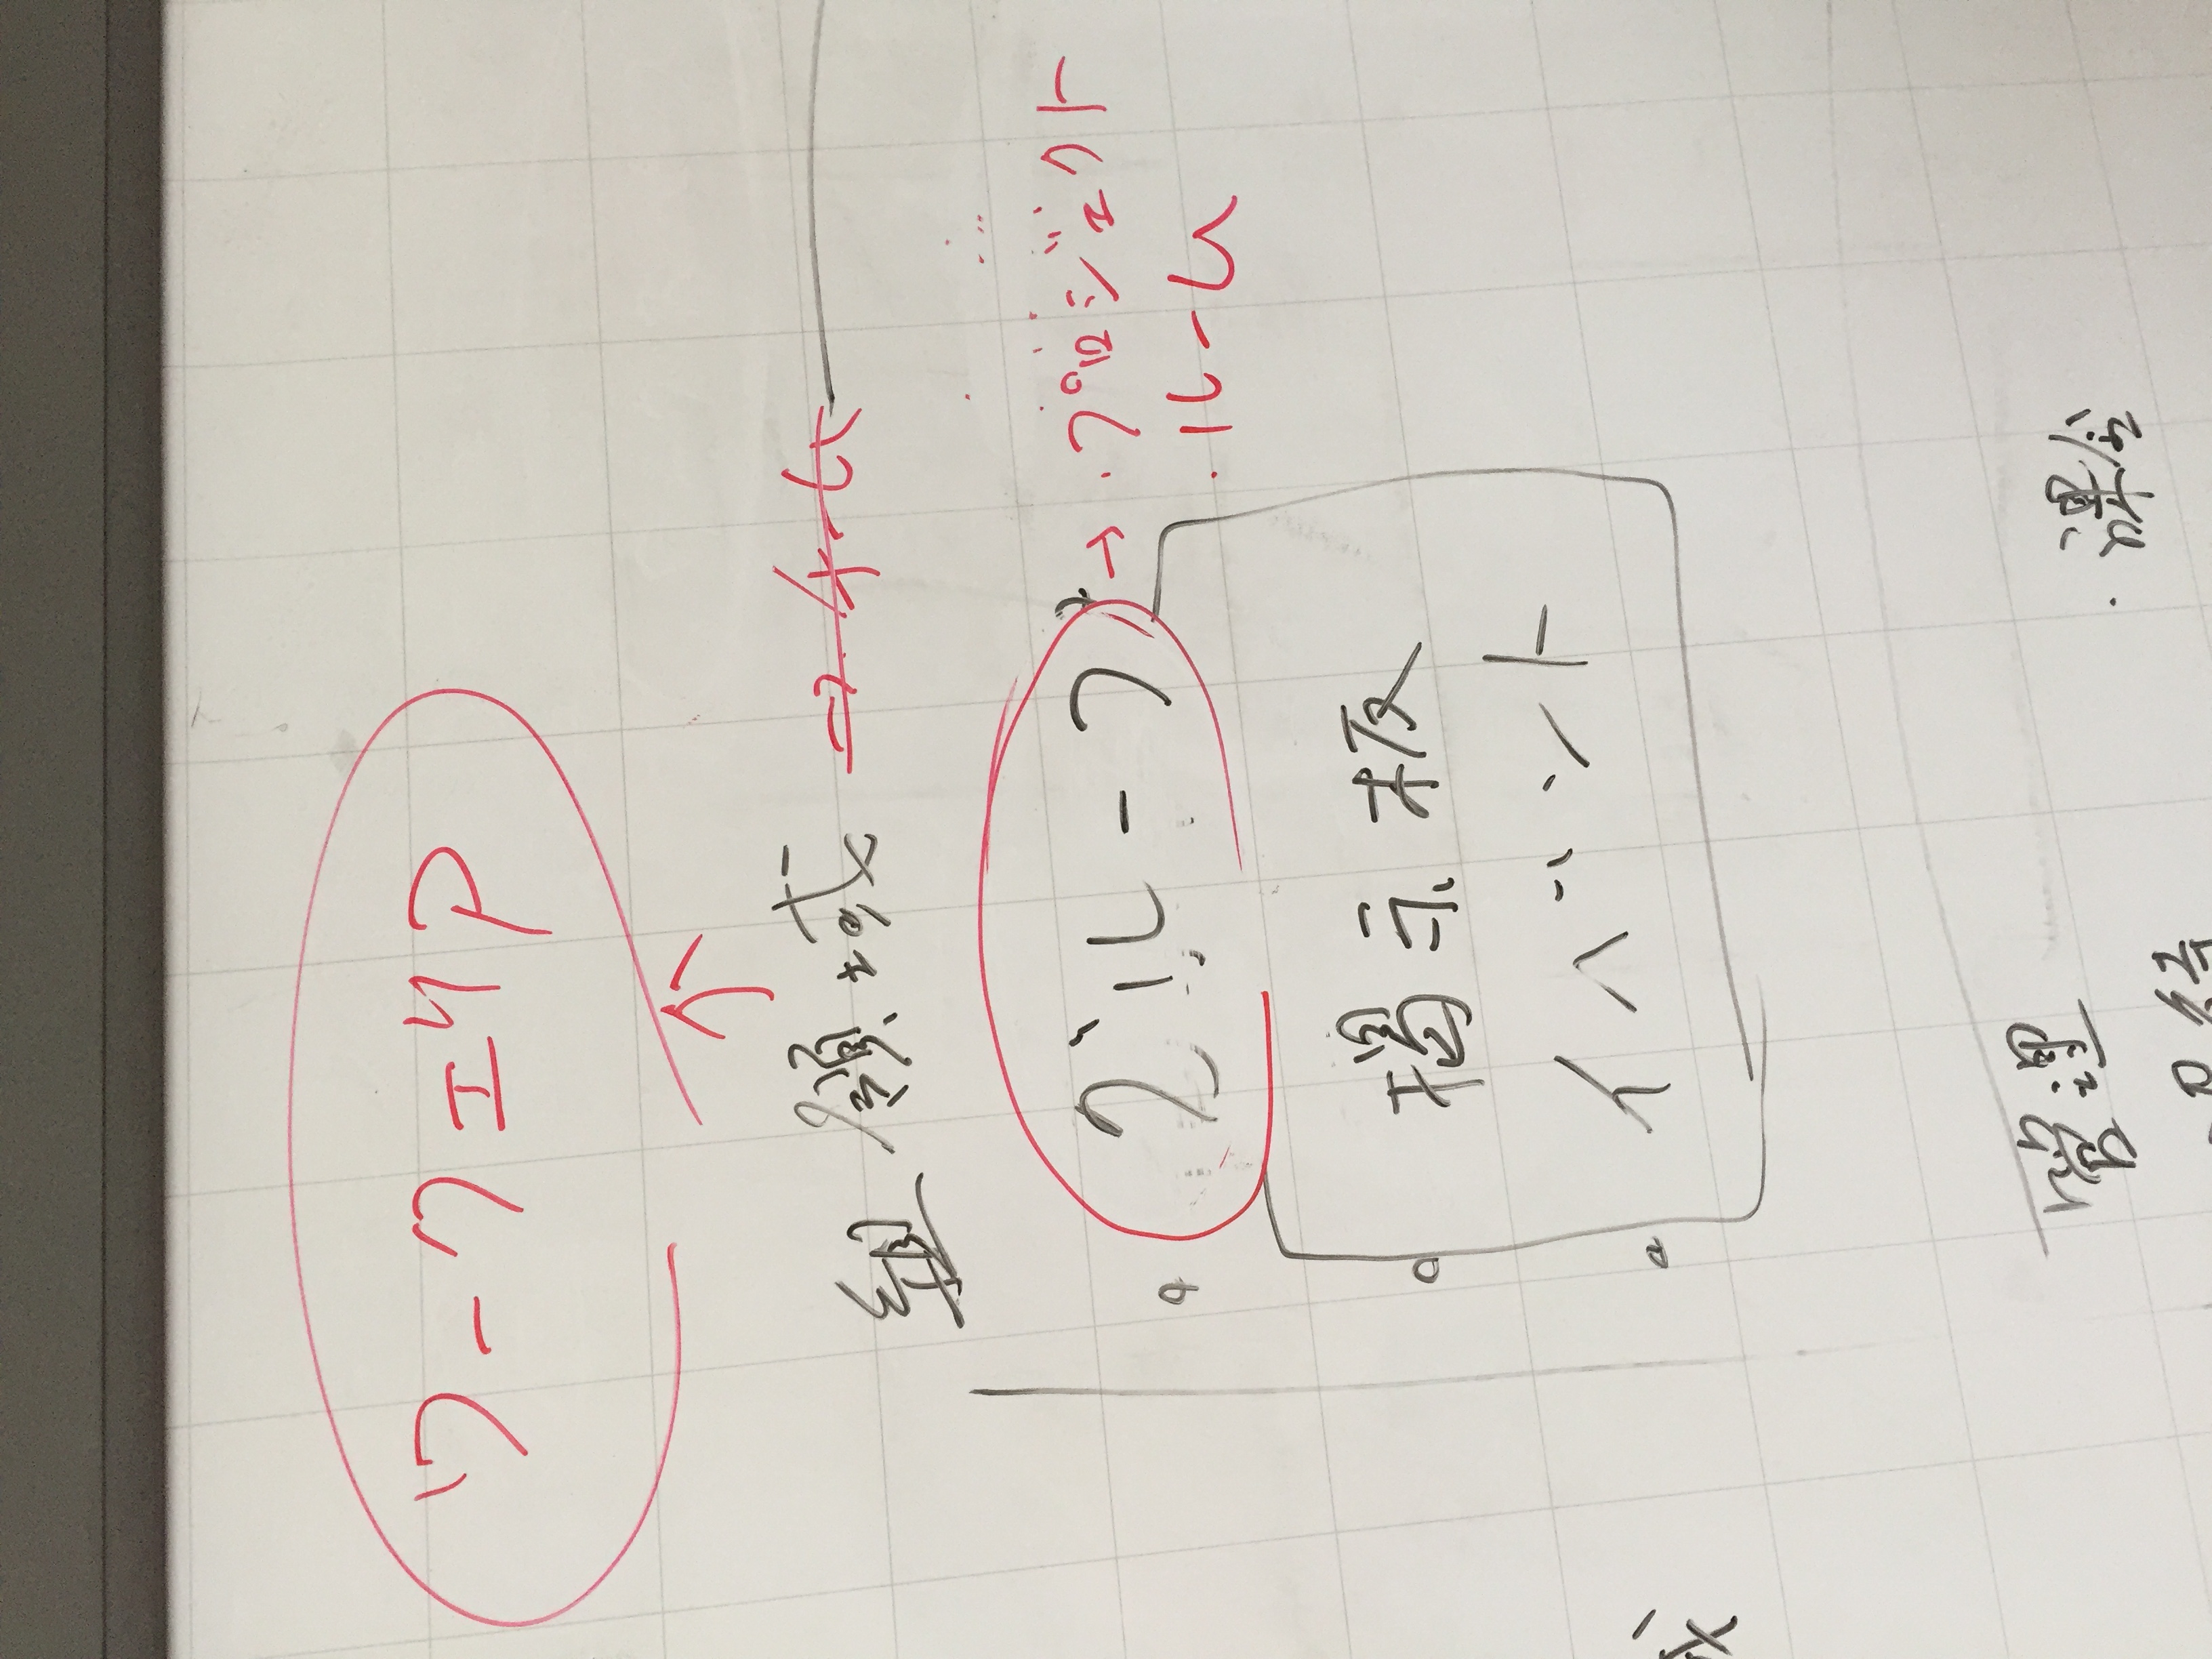 ワークエリア
↑
組 領域 → チーム
グループ → ・プロジェクト
・ルーム
掲示板
イベント
管理
・課金